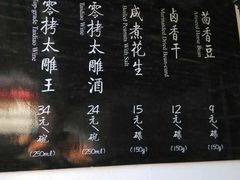 茴香豆
9元/碟
(150g)
卤香干
Marinated Dried Bean-curd
12元/碟
(150g)
咸煮花生
Boiled Peanuts With Salt
15元/碟
(150g)
零拷太雕酒
Taidiao Wine
24元/碗
(250ml)
零拷太雕王
Top-grade Taidiao Wine
34元/碗
(250ml)